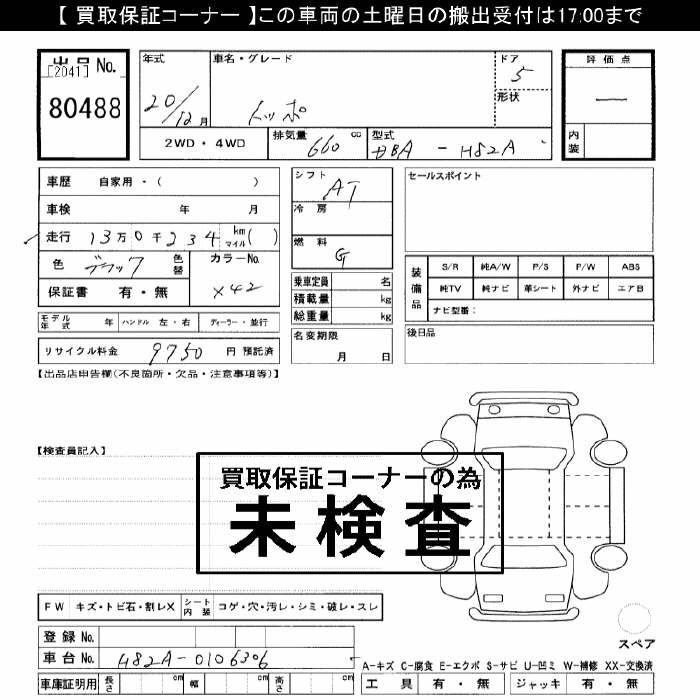 【 買取保証コーナー 】この車両の土曜日の搬出受付は17:00まで
出品 No.
[2041]
80488
年式
20/12 月
車名・グレード
トッポ
ドア
5
形状
評価点
―
内装
2WD・4WD
排気量 660 cc
型式 DBA - H82A
車歴 自家用・( )
車検 年 月
走行 13万0千234 km マイル ( )
色 ブラック 色替
カラーNo.
X42
保証書 有・無
モデル年式 年 ハンドル 左・右 ディーラー・並行
リサイクル料金 9750 円 預託済
シフト
AT
冷房
燃料
G
乗車定員 名
積載量 kg
総重量 kg
名変期限
月 日
セールスポイント
装備品
S/R 純A/W P/S P/W ABS
純TV 純ナビ 革シート 外ナビ エアB
ナビ型番:
後日品
【出品店申告欄(不良箇所・欠品・注意事項等)】
【検査員記入】
買取保証コーナーの為
未検査
FW キズ・トビ石・割レX シート内装 コゲ・穴・汚レ・シミ・破レ・スレ
登録 No.
車台 No. H82A-0106306
車庫証明用 長さ cm 幅 cm 高さ cm
スペア
A-キズ C-腐食 E-エクボ S-サビ U-凹ミ W-補修 XX-交換済
工具 有・無 ジャッキ 有・無